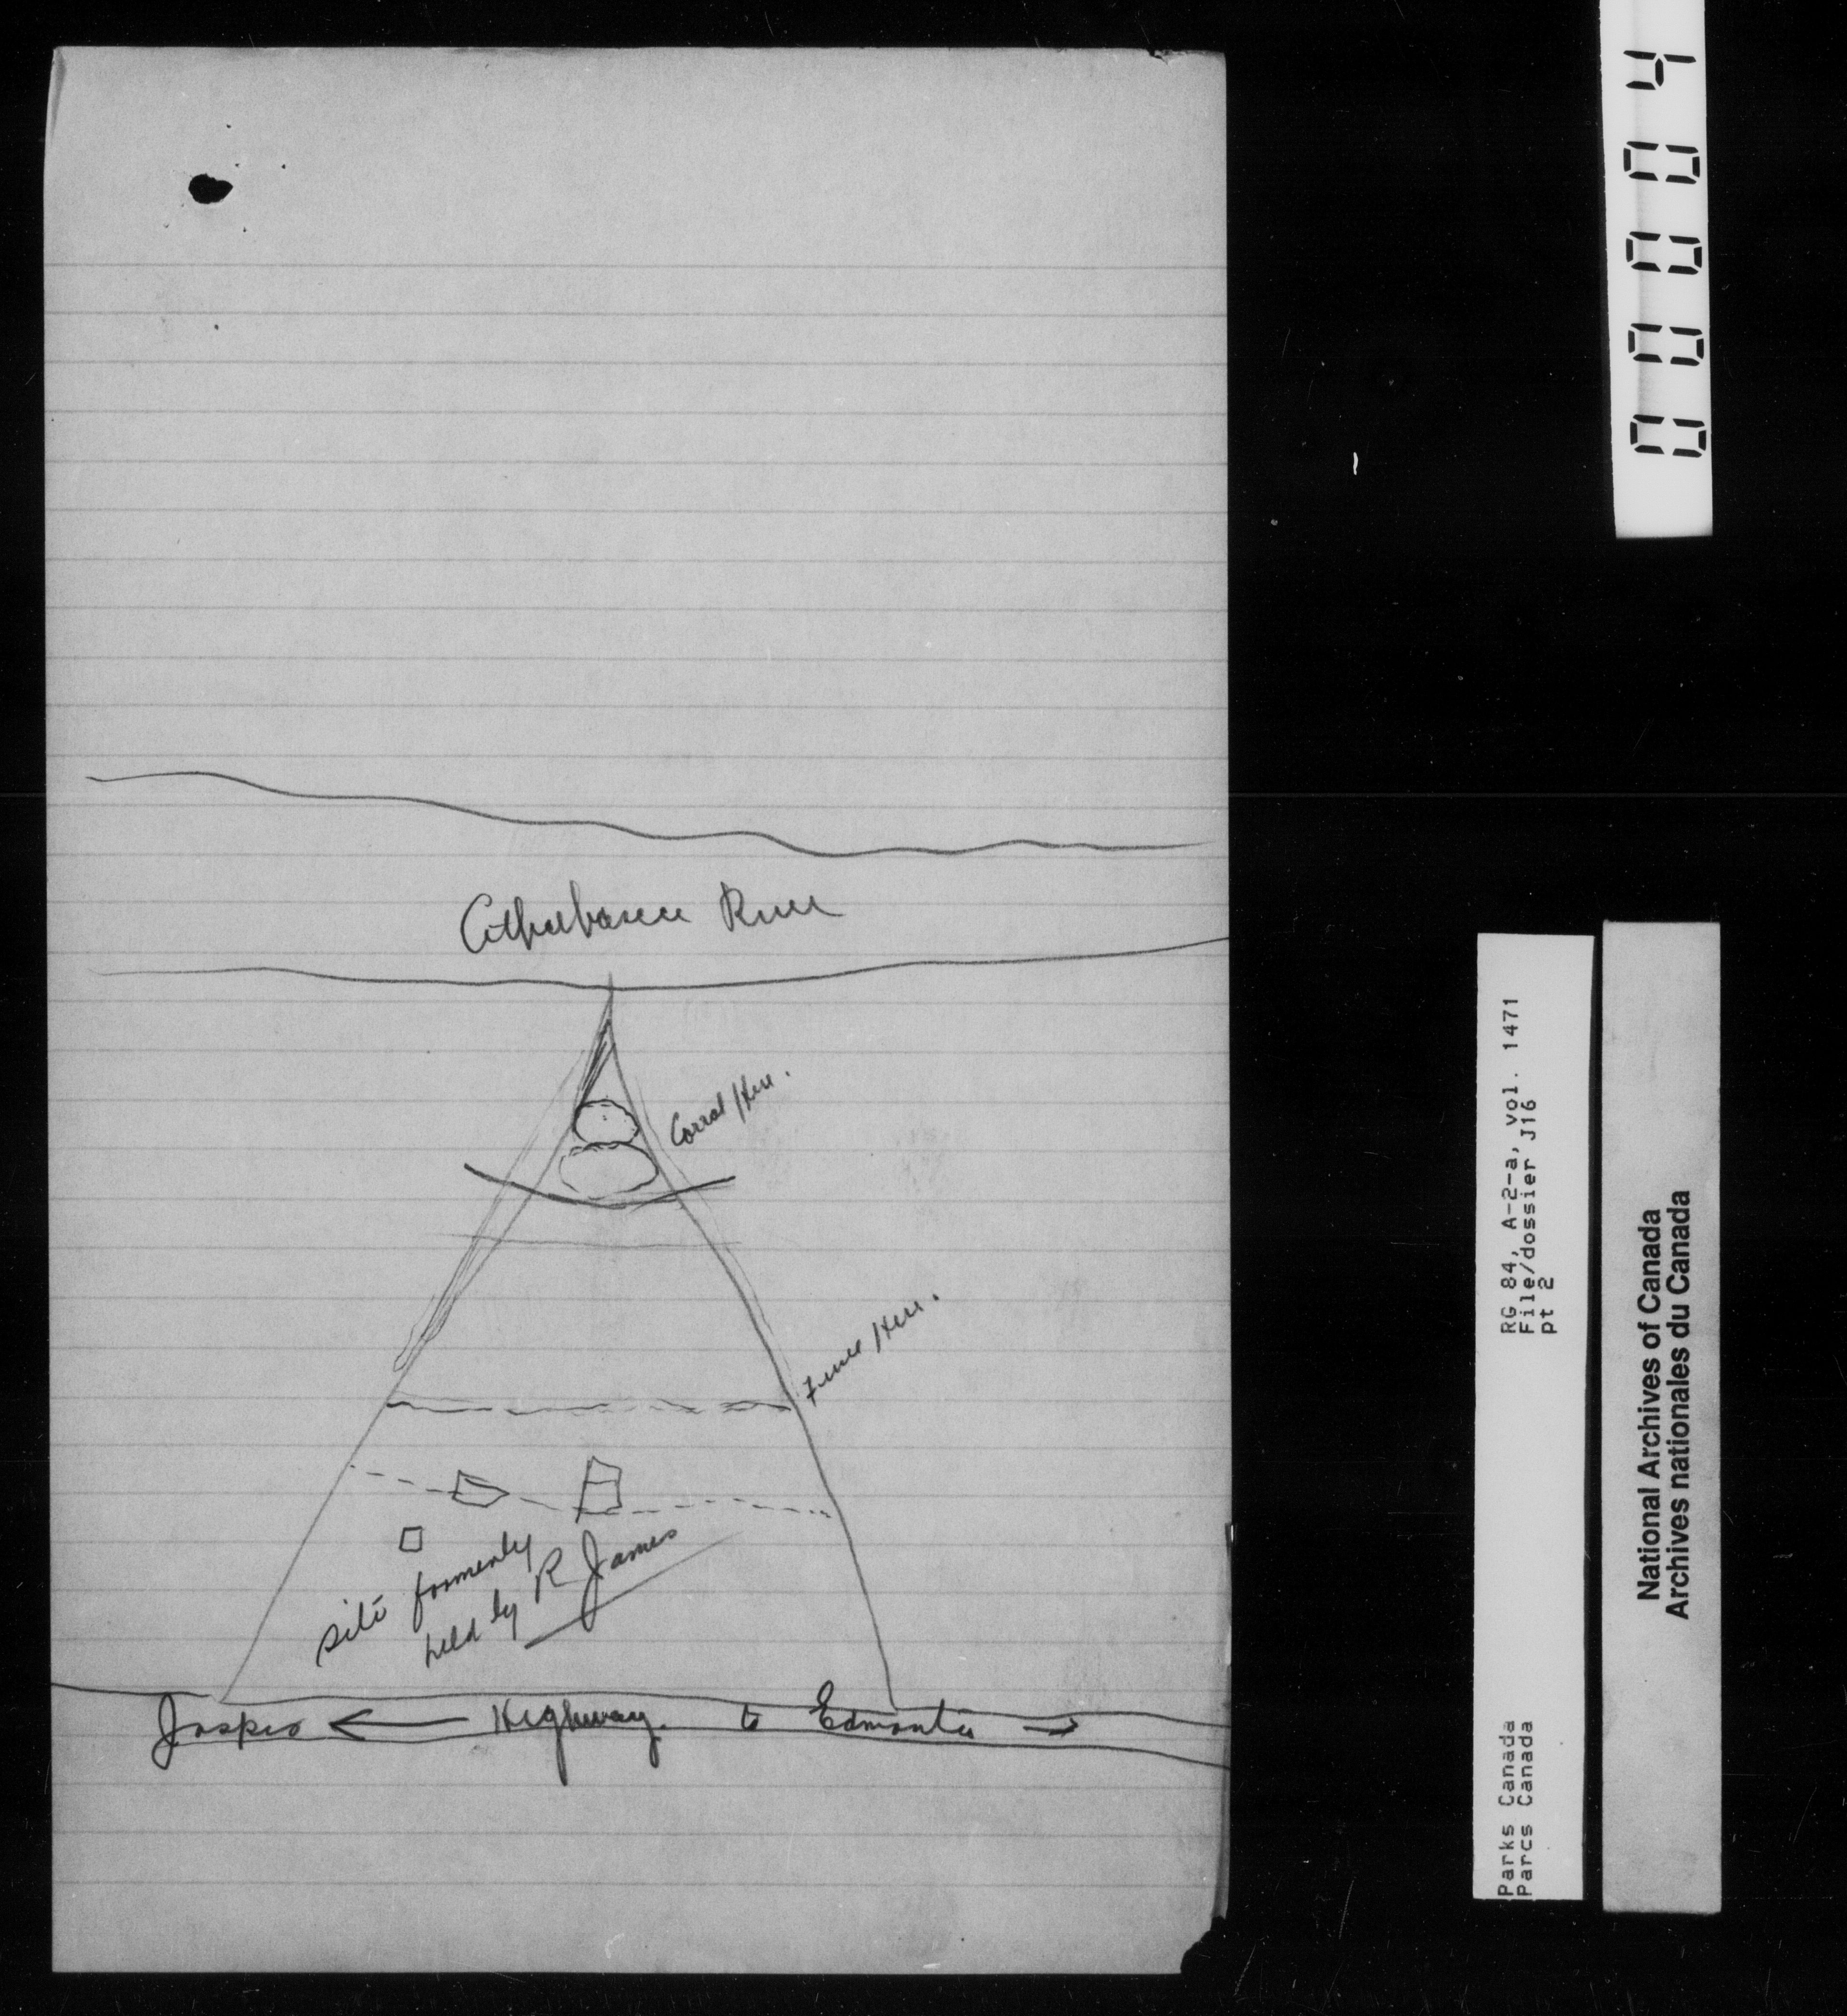 Athabasca River
Corral Here.
Fence Here.
site formerly
held by R James
Jasper ← Highway. to Edmonton →
00004
RG 84, A-2-a, vol. 1471
File/dossier J16
pt 2
Parks Canada
Parcs Canada
National Archives of Canada
Archives nationales du Canada